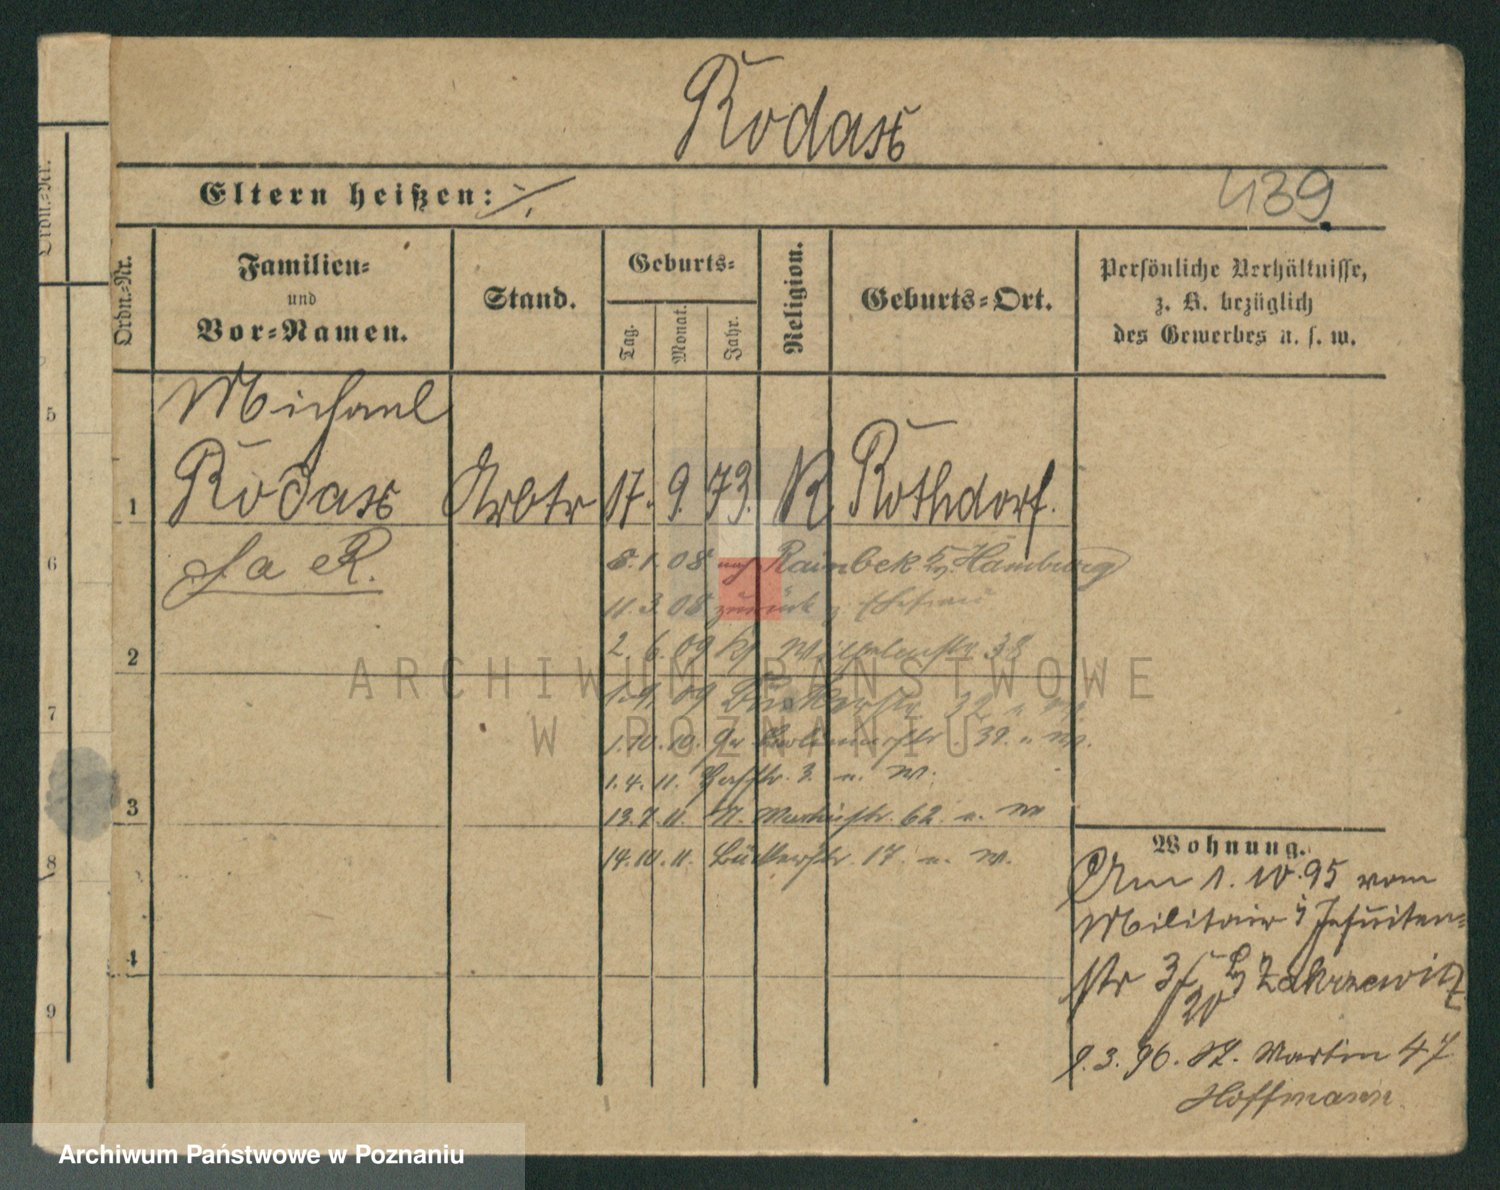 Rodax
Eltern heißen: ./.
439
Ordn.-Nr.
Familien-
und
Vor-Namen.
Stand.
Geburts-
Tag.
Monat.
Jahr.
Religion.
Geburts-Ort.
Persönliche Verhältnisse,
z. B. bezüglich
des Gewerbes u. s. w.
Ordn.-Nr.
5
6
7
8
9
Michael
1 Rodax Arbtr 17. 9. 73. K Rothdorf.
R.
8. 1. 08 nach Rainbek Hamburg
11. 3. 08 zurück
2
2. 6. 09 38
1. 09 32 u. W.
1. 10. 10. 32. u. W.
1. 4. 11. 3. u. W.
3
13. 7. 11. St. Martinstr. 62. u. W
14. 10. 11. Bäckerstr. 17. u. W.
4
Wohnung.
Am 1. 10. 95 vom
Militair Jesuiten-
str Zakrzewicz
20
9. 3. 96. St. Martin 47
Hoffmann
ARCHIWUM PAŃSTWOWE
W POZNANIU
Archiwum Państwowe w Poznaniu